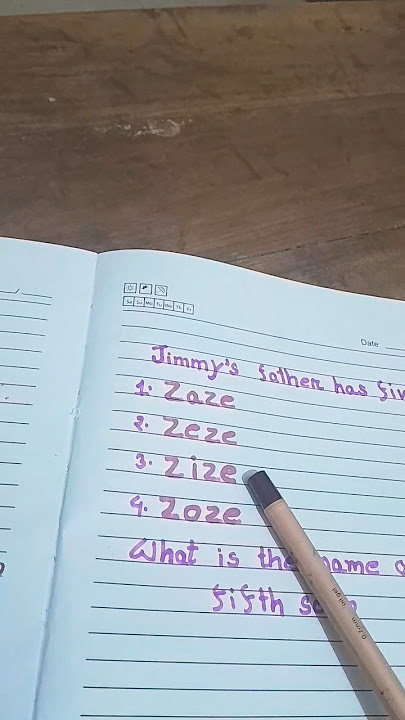 Sa Su Mo Tu We Th Fr
Date
Jimmy's father has
1. Zaze
2. Zeze
3. Zize
4. Zoze
What is the name
fifth